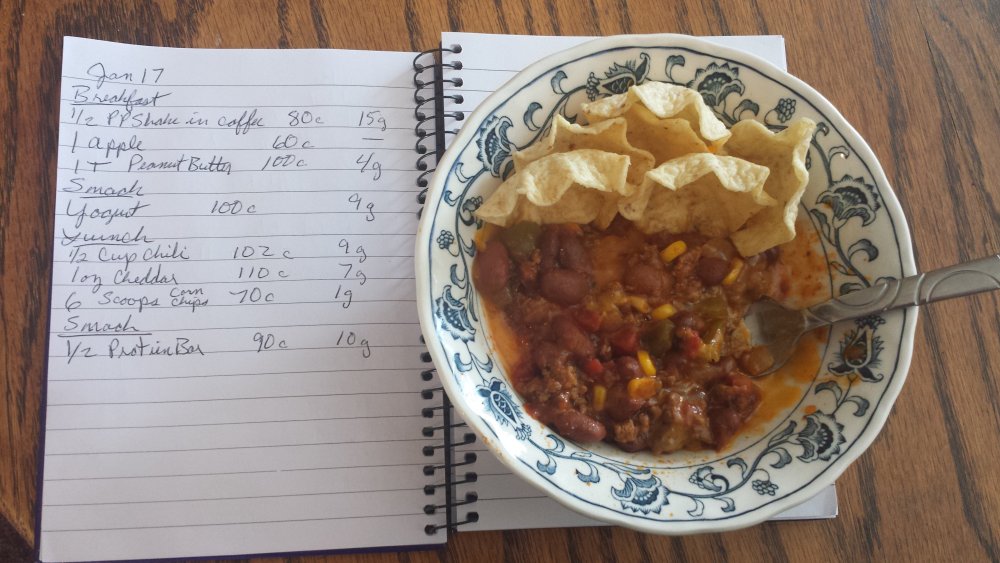 Jan 17
Breakfast
1/2 PP Shake in coffee 80c 15g
1 apple 60c —
1 T Peanut Butter 100c 4g
Snack
Yogurt 100c 9g
Lunch
1/2 Cup Chili 102c 9g
1 oz Cheddar 110c 7g
6 Scoops Corn Chips 70c 1g
Snack
1/2 Protien Bar 90c 10g